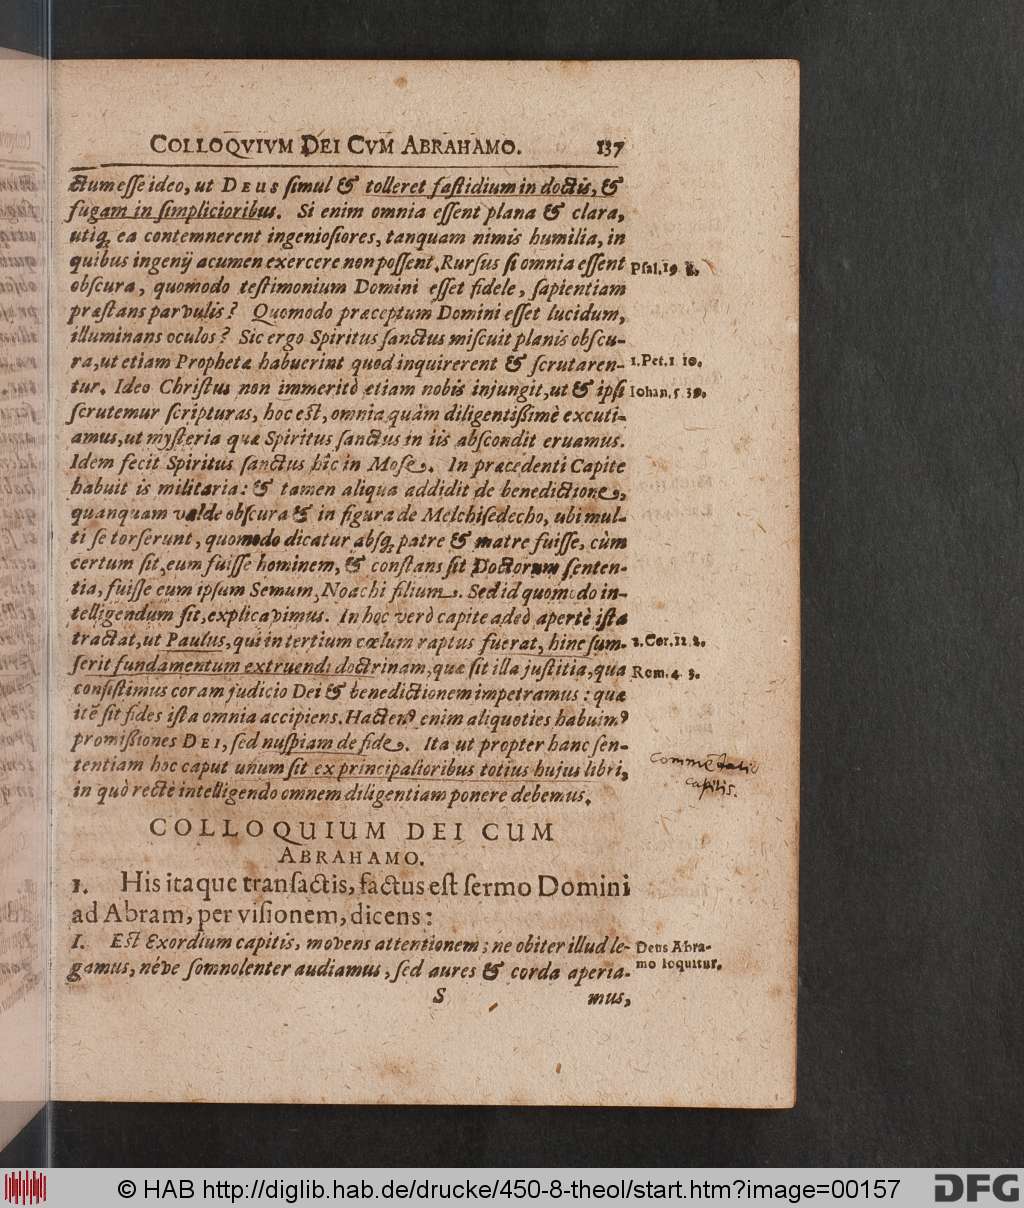 COLLOQVIVM DEI CVM ABRAHAMO. 137
ctum esse ideo, ut DEUS simul & tolleret fastidium in doctis, &
fugam in simplicioribus. Si enim omnia essent plana & clara,
utiq; ea contemnerent ingeniosiores, tanquam nimis humilia, in
quibus ingenij acumen exercere non possent. Rursus si omnia essent
Psal. 19 8.
obscura, quomodo testimonium Domini esset fidele, sapientiam
præstans parvulis? Quomodo præceptum Domini esset lucidum,
illuminans oculos? Sic ergo Spiritus sanctus miscuit planis obscu-
ra, ut etiam Prophetæ habuerint quod inquirerent & scrutaren-
1. Pet. 1 10.
tur. Ideo Christus non immeritò etiam nobis injungit, ut & ipsi
Iohan. 5 39.
scrutemur scripturas, hoc est, omnia quàm diligentissimè excuti-
amus, ut mysteria quæ Spiritus sanctus in iis abscondit eruamus.
Idem fecit Spiritus sanctus hîc in Mose. In præcedenti Capite
habuit is militaria: & tamen aliqua addidit de benedictione,
quanquam valde obscura & in figura de Melchisedecho, ubi mul-
ti se torserunt, quomodo dicatur absq; patre & matre fuisse, cùm
certum sit, eum fuisse hominem, & constans sit Doctorum senten-
tia, fuisse eum ipsum Semum, Noachi filium. Sed id quomodo in-
telligendum sit, explicavimus. In hoc verò capite adeò apertè ista
tractat, ut Paulus, qui in tertium cœlum raptus fuerat, hinc sum-
2. Cor. 12 2.
serit fundamentum extruendi doctrinam, quæ sit illa justitia, qua
Rom. 4 3.
consistimus coram judicio Dei & benedictionem impetramus: quæ
itē sit fides ista omnia accipiens. Hacten⁹ enim aliquoties habuim⁹
promissiones DEI, sed nuspiam de fide. Ita ut propter hanc sen-
tentiam hoc caput unum sit ex principalioribus totius hujus libri,
in quò rectè intelligendo omnem diligentiam ponere debemus.
Commēdatio
capitis.
COLLOQUIUM DEI CUM
ABRAHAMO.
1. His itaque transactis, factus est sermo Domini
ad Abram, per visionem, dicens:
I. Est Exordium capitis, movens attentionem; ne obiter illud le-
Deus Abra-
gamus, néve somnolenter audiamus, sed aures & corda aperia-
mo loquitur.
S mus,
© HAB http://diglib.hab.de/drucke/450-8-theol/start.htm?image=00157
DFG